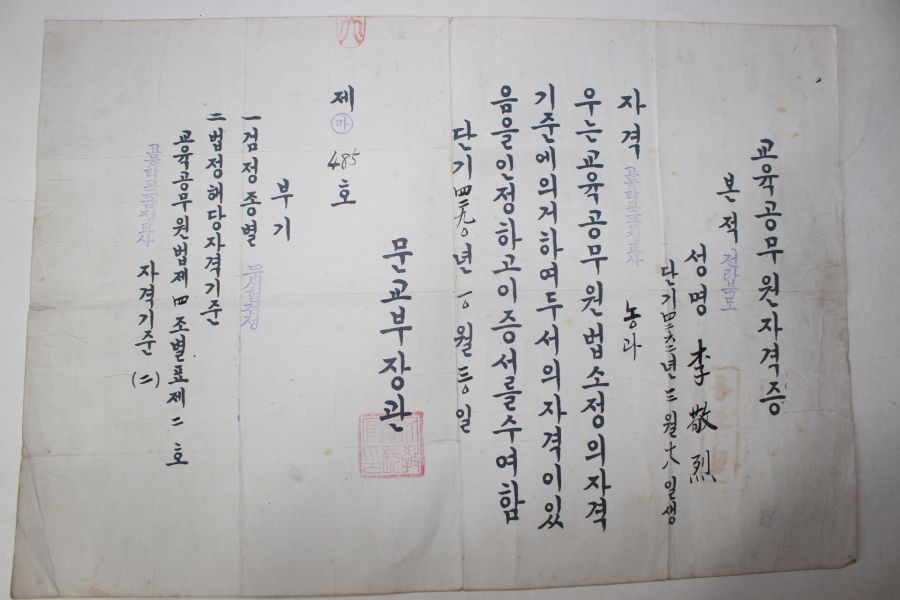 교육공무원자격증
본적 전라북도
성명 李敬烈
월 十八 일생
자격 고등학교준교사 농과
우는교육공무원법소정의자격
기준에의거하여두서의자격이있
음을인정하고이증서를수여함
단기四二九〇년 一〇월 三〇일
문교부장관
제 ㉮ 485 호
부기
一 검정종별 무시험검정
二 법정해당자격기준
교육공무원법제 四 조별표제 二 호
자격기준 (二)